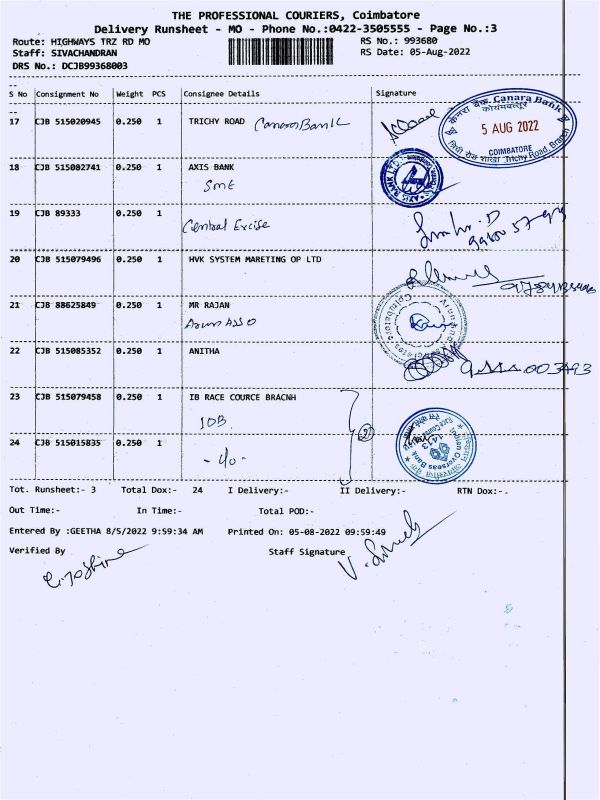 THE PROFESSIONAL COURIERS, Coimbatore
Delivery Runsheet - MO - Phone No.:0422-3505555 - Page No.:3
Route: HIGHWAYS TRZ RD MO RS No.: 993680
Staff: SIVACHANDRAN RS Date: 05-Aug-2022
DRS No.: DCJB99368003
S No Consignment No Weight PCS Consignee Details Signature
17 CJB 515020945 0.250 1 TRICHY ROAD Canara Bank
केनरा बैंक Canara Bank
कोयंबत्तूर
5 AUG 2022
COIMBATORE
Trichy Road Branch
18 CJB 515082741 0.250 1 AXIS BANK
SME
AXIS BANK LTD.
19 CJB 89333 0.250 1
Central Excise
20 CJB 515079496 0.250 1 HVK SYSTEM MARETING OP LTD
21 CJB 88625849 0.250 1 MR RAJAN
Arun ASSO
Coimbatore
22 CJB 515085352 0.250 1 ANITHA
23 CJB 515079458 0.250 1 IB RACE COURCE BRACNH
IOB
2
Indian Overseas Bank
1413
24 CJB 515015835 0.250 1
Tot. Runsheet:- 3 Total Dox:- 24 I Delivery:- II Delivery:- RTN Dox:-
Out Time:- In Time:- Total POD:-
Entered By :GEETHA 8/5/2022 9:59:34 AM Printed On: 05-08-2022 09:59:49
Verified By Staff Signature